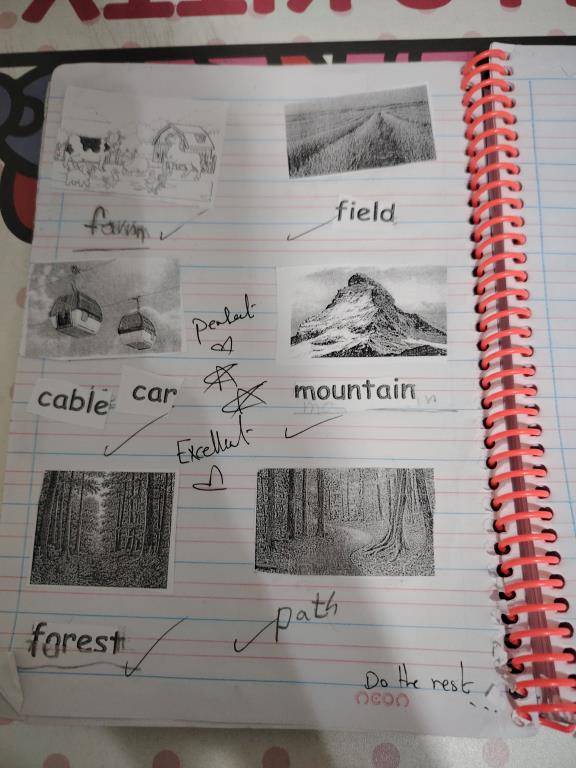 farm
field
perfect
cable car
mountain
Excellent
path
forest
Do the rest...
neon